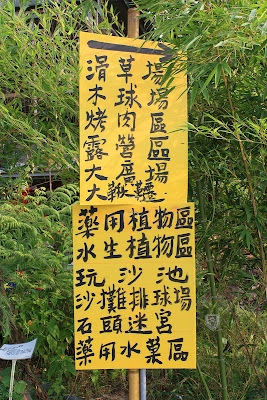 滑草場
木球場
烤肉區
露營區
大廣場
大鞦韆
藥用植物區
水生植物區
玩沙池
沙灘排球場
石頭迷宮
藥用水菓區